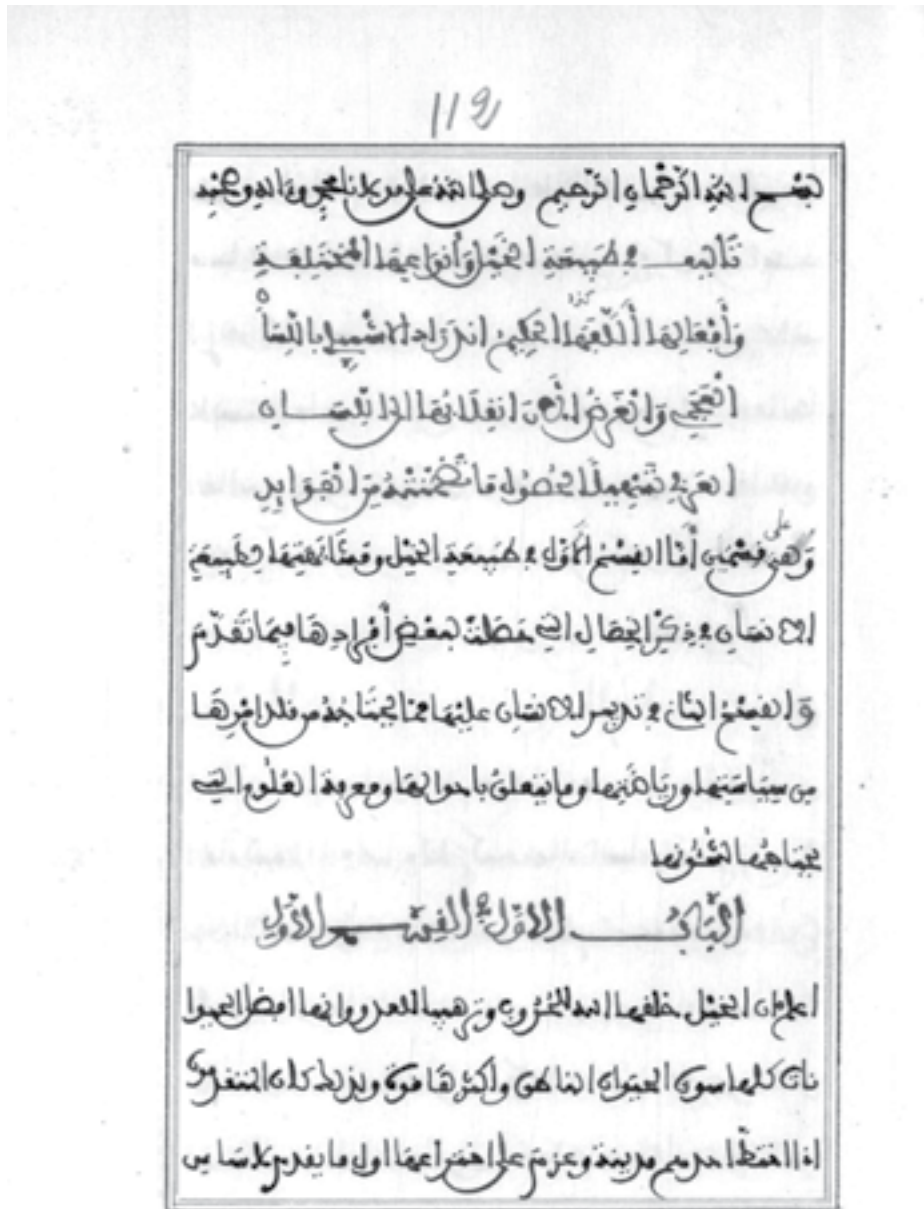 119
بسم الله الرحمان الرحيم وصلى الله على سيدنا محمد وءاله وصحبه
تأليف في طبيعة الخيل وأنواعها المختلفة
وأفعالها ألفها كذا الحكيم اندراد الاشبيلي باللسان
العجمي والغرض الآن انقلابها الى اللسان
العربي تسهيلا لحصول ما تضمنته من الفوايد
وهي على قسمين أما القسم الأول في طبيعة الخيل
الانسان في ذكر الخصال التي بعض أفرادها فيما تقدم
والقسم الثاني في تدريس الانسان عليها مما يحتاجه من
من سياستها ورياضتها وما يتعلق باحوالها ومعرفة العلوم التي
يحتاجها
الباب الاول في القسم الاول
اعلم ان الخيل خلقها الله للحروب وترهيبا للعدو وانها افضل الحيوا
نات كلها سوى الحيوان الناطق وأكثرها قوة ولذلك كان المتقدمون
اذا احد مدينة وعزم على اول ما يقدم